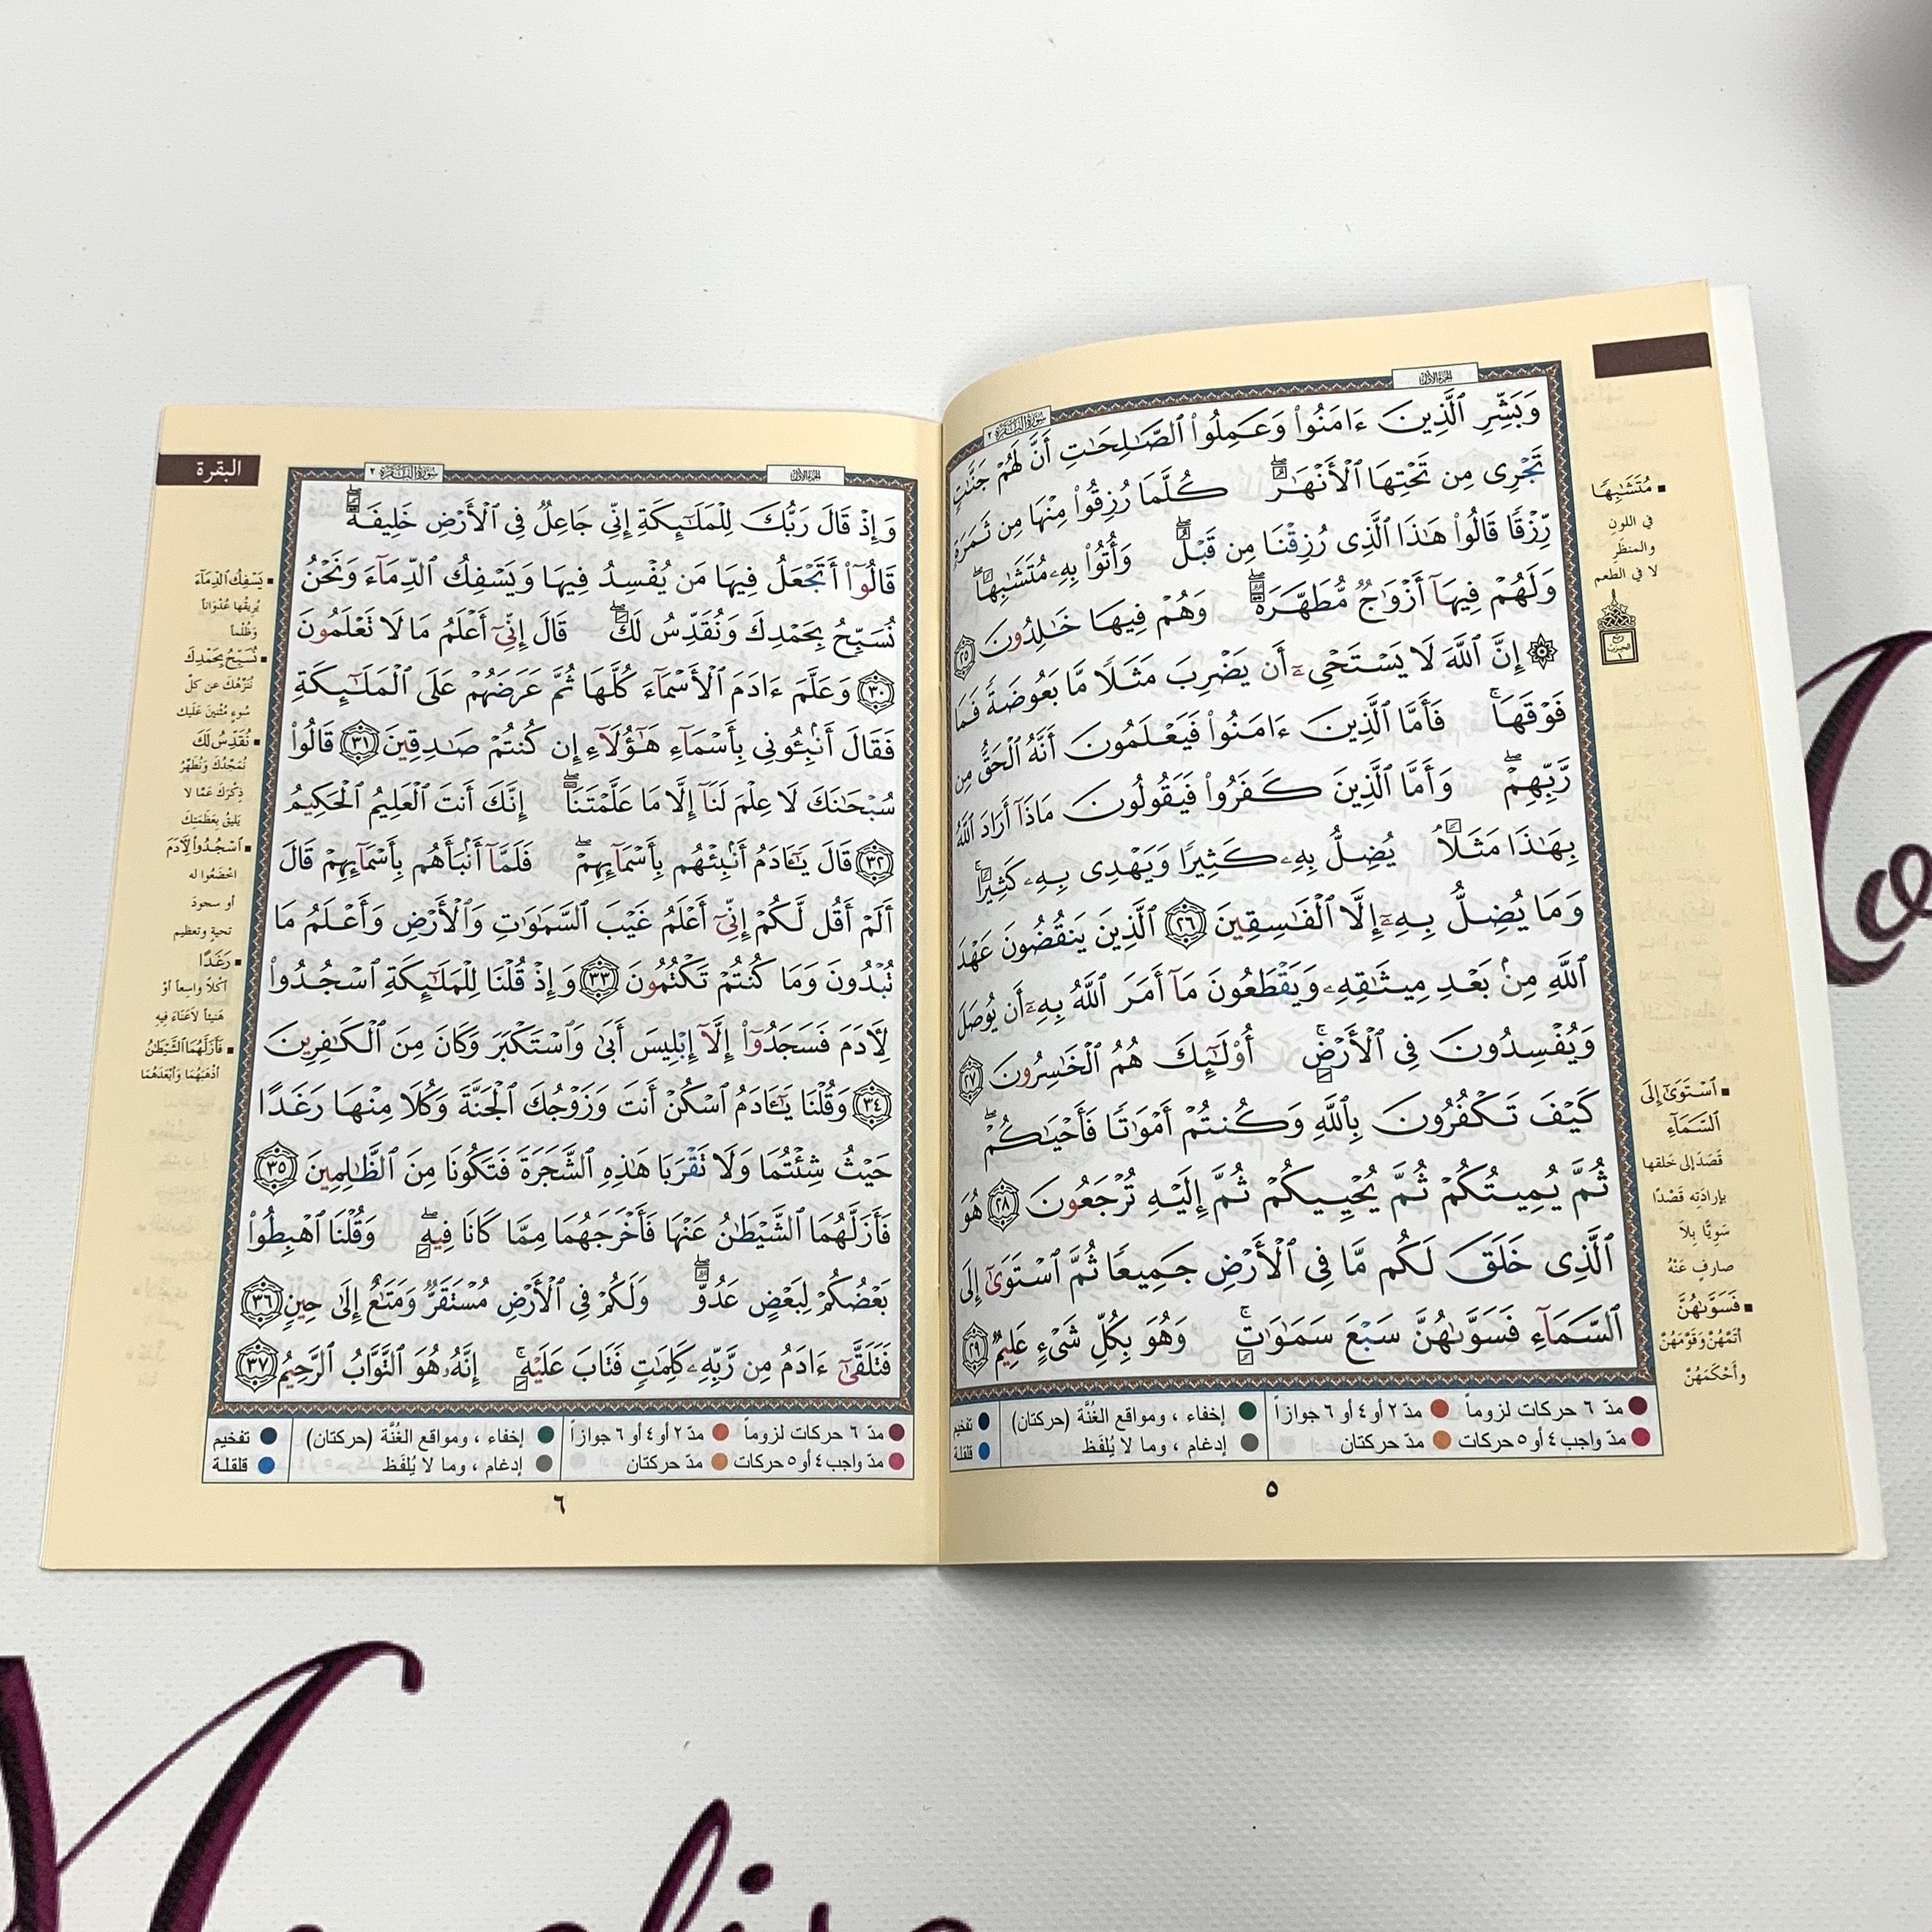 الجزء الأول
سورة البقرة ٢
وَبَشِّرِ ٱلَّذِينَ ءَامَنُوا۟ وَعَمِلُوا۟ ٱلصَّـٰلِحَـٰتِ أَنَّ لَهُمْ جَنَّـٰتٍ
تَجْرِى مِن تَحْتِهَا ٱلْأَنْهَـٰرُ ۖ كُلَّمَا رُزِقُوا۟ مِنْهَا مِن ثَمَرَةٍ
رِّزْقًا قَالُوا۟ هَـٰذَا ٱلَّذِى رُزِقْنَا مِن قَبْلُ ۖ وَأُتُوا۟ بِهِۦ مُتَشَـٰبِهًا ۖ
وَلَهُمْ فِيهَآ أَزْوَٰجٌ مُّطَهَّرَةٌ ۖ وَهُمْ فِيهَا خَـٰلِدُونَ ٢٥
۞ إِنَّ ٱللَّهَ لَا يَسْتَحْىِۦٓ أَن يَضْرِبَ مَثَلًا مَّا بَعُوضَةً فَمَا
فَوْقَهَا ۚ فَأَمَّا ٱلَّذِينَ ءَامَنُوا۟ فَيَعْلَمُونَ أَنَّهُ ٱلْحَقُّ مِن
رَّبِّهِمْ ۖ وَأَمَّا ٱلَّذِينَ كَفَرُوا۟ فَيَقُولُونَ مَاذَآ أَرَادَ ٱللَّهُ
بِهَـٰذَا مَثَلًا ۘ يُضِلُّ بِهِۦ كَثِيرًا وَيَهْدِى بِهِۦ كَثِيرًا ۚ
وَمَا يُضِلُّ بِهِۦٓ إِلَّا ٱلْفَـٰسِقِينَ ٢٦ ٱلَّذِينَ يَنقُضُونَ عَهْدَ
ٱللَّهِ مِنۢ بَعْدِ مِيثَـٰقِهِۦ وَيَقْطَعُونَ مَآ أَمَرَ ٱللَّهُ بِهِۦٓ أَن يُوصَلَ
وَيُفْسِدُونَ فِى ٱلْأَرْضِ ۚ أُو۟لَـٰٓئِكَ هُمُ ٱلْخَـٰسِرُونَ ٢٧
كَيْفَ تَكْفُرُونَ بِٱللَّهِ وَكُنتُمْ أَمْوَٰتًا فَأَحْيَـٰكُمْ ۖ
ثُمَّ يُمِيتُكُمْ ثُمَّ يُحْيِيكُمْ ثُمَّ إِلَيْهِ تُرْجَعُونَ ٢٨ هُوَ
ٱلَّذِى خَلَقَ لَكُم مَّا فِى ٱلْأَرْضِ جَمِيعًا ثُمَّ ٱسْتَوَىٰٓ إِلَى
ٱلسَّمَآءِ فَسَوَّىٰهُنَّ سَبْعَ سَمَـٰوَٰتٍ ۚ وَهُوَ بِكُلِّ شَىْءٍ عَلِيمٌ ٢٩
■ مُتَشَـٰبِهًا
في اللون
والمنظر
لا في الطعم
ربع
الحزب
١
■ ٱسْتَوَىٰٓ إِلَى
ٱلسَّمَآءِ
قَصَدَ إلى خلقها
بإرادته قَصْدًا
سَوِيًّا بلا
صارفٍ عَنْهُ
■ فَسَوَّىٰهُنَّ
أتمَّهُنَّ وقَوَّمَهُنَّ
وأَحْكَمَهُنَّ
مدّ ٦ حركات لزوماً مدّ ٢ أو ٤ أو ٦ جوازاً إخفاء ، ومواقع الغُنَّة (حركتان) تفخيم
مدّ واجب ٤ أو ٥ حركات مدّ حركتان إدغام ، وما لا يُلفَظ قلقلة
٥
البقرة
الجزء الأول
سورة البقرة ٢
وَإِذْ قَالَ رَبُّكَ لِلْمَلَـٰٓئِكَةِ إِنِّى جَاعِلٌ فِى ٱلْأَرْضِ خَلِيفَةً ۖ
قَالُوٓا۟ أَتَجْعَلُ فِيهَا مَن يُفْسِدُ فِيهَا وَيَسْفِكُ ٱلدِّمَآءَ وَنَحْنُ
نُسَبِّحُ بِحَمْدِكَ وَنُقَدِّسُ لَكَ ۖ قَالَ إِنِّىٓ أَعْلَمُ مَا لَا تَعْلَمُونَ
٣٠ وَعَلَّمَ ءَادَمَ ٱلْأَسْمَآءَ كُلَّهَا ثُمَّ عَرَضَهُمْ عَلَى ٱلْمَلَـٰٓئِكَةِ
فَقَالَ أَنۢبِـُٔونِى بِأَسْمَآءِ هَـٰٓؤُلَآءِ إِن كُنتُمْ صَـٰدِقِينَ ٣١ قَالُوا۟
سُبْحَـٰنَكَ لَا عِلْمَ لَنَآ إِلَّا مَا عَلَّمْتَنَآ ۖ إِنَّكَ أَنتَ ٱلْعَلِيمُ ٱلْحَكِيمُ
٣٢ قَالَ يَـٰٓـَٔادَمُ أَنۢبِئْهُم بِأَسْمَآئِهِمْ ۖ فَلَمَّآ أَنۢبَأَهُم بِأَسْمَآئِهِمْ قَالَ
أَلَمْ أَقُل لَّكُمْ إِنِّىٓ أَعْلَمُ غَيْبَ ٱلسَّمَـٰوَٰتِ وَٱلْأَرْضِ وَأَعْلَمُ مَا
تُبْدُونَ وَمَا كُنتُمْ تَكْتُمُونَ ٣٣ وَإِذْ قُلْنَا لِلْمَلَـٰٓئِكَةِ ٱسْجُدُوا۟
لِـَٔادَمَ فَسَجَدُوٓا۟ إِلَّآ إِبْلِيسَ أَبَىٰ وَٱسْتَكْبَرَ وَكَانَ مِنَ ٱلْكَـٰفِرِينَ
٣٤ وَقُلْنَا يَـٰٓـَٔادَمُ ٱسْكُنْ أَنتَ وَزَوْجُكَ ٱلْجَنَّةَ وَكُلَا مِنْهَا رَغَدًا
حَيْثُ شِئْتُمَا وَلَا تَقْرَبَا هَـٰذِهِ ٱلشَّجَرَةَ فَتَكُونَا مِنَ ٱلظَّـٰلِمِينَ ٣٥
فَأَزَلَّهُمَا ٱلشَّيْطَـٰنُ عَنْهَا فَأَخْرَجَهُمَا مِمَّا كَانَا فِيهِ ۖ وَقُلْنَا ٱهْبِطُوا۟
بَعْضُكُمْ لِبَعْضٍ عَدُوٌّ ۖ وَلَكُمْ فِى ٱلْأَرْضِ مُسْتَقَرٌّ وَمَتَـٰعٌ إِلَىٰ حِينٍ ٣٦
فَتَلَقَّىٰٓ ءَادَمُ مِن رَّبِّهِۦ كَلِمَـٰتٍ فَتَابَ عَلَيْهِ ۚ إِنَّهُۥ هُوَ ٱلتَّوَّابُ ٱلرَّحِيمُ ٣٧
■ يَسْفِكُ ٱلدِّمَآءَ
يُريقُها عُدْوَاناً
وَظُلْماً
■ نُسَبِّحُ بِحَمْدِكَ
نُنَزِّهُكَ عن كلّ
سُوءٍ مُثْنِينَ عَلَيك
■ نُقَدِّسُ لَكَ
نُمَجِّدُكَ ونُطَهِّرُ
ذِكْرَكَ عَمَّا لا
يَليقُ بِعَظَمَتِك
■ ٱسْجُدُوا۟ لِـَٔادَمَ
اخْضَعُوا له
أو سجودَ
تحيةٍ وتعظيم
■ رَغَدًا
أكْلاً واسِعاً أوْ
هَنيئاً لاعَنَاءَ فِيهِ
■ فَأَزَلَّهُمَا ٱلشَّيْطَـٰنُ
أذْهَبَهُمَا وَأبْعَدَهُمَا
مدّ ٦ حركات لزوماً مدّ ٢ أو ٤ أو ٦ جوازاً إخفاء ، ومواقع الغُنَّة (حركتان) تفخيم
مدّ واجب ٤ أو ٥ حركات مدّ حركتان إدغام ، وما لا يُلفَظ قلقلة
٦